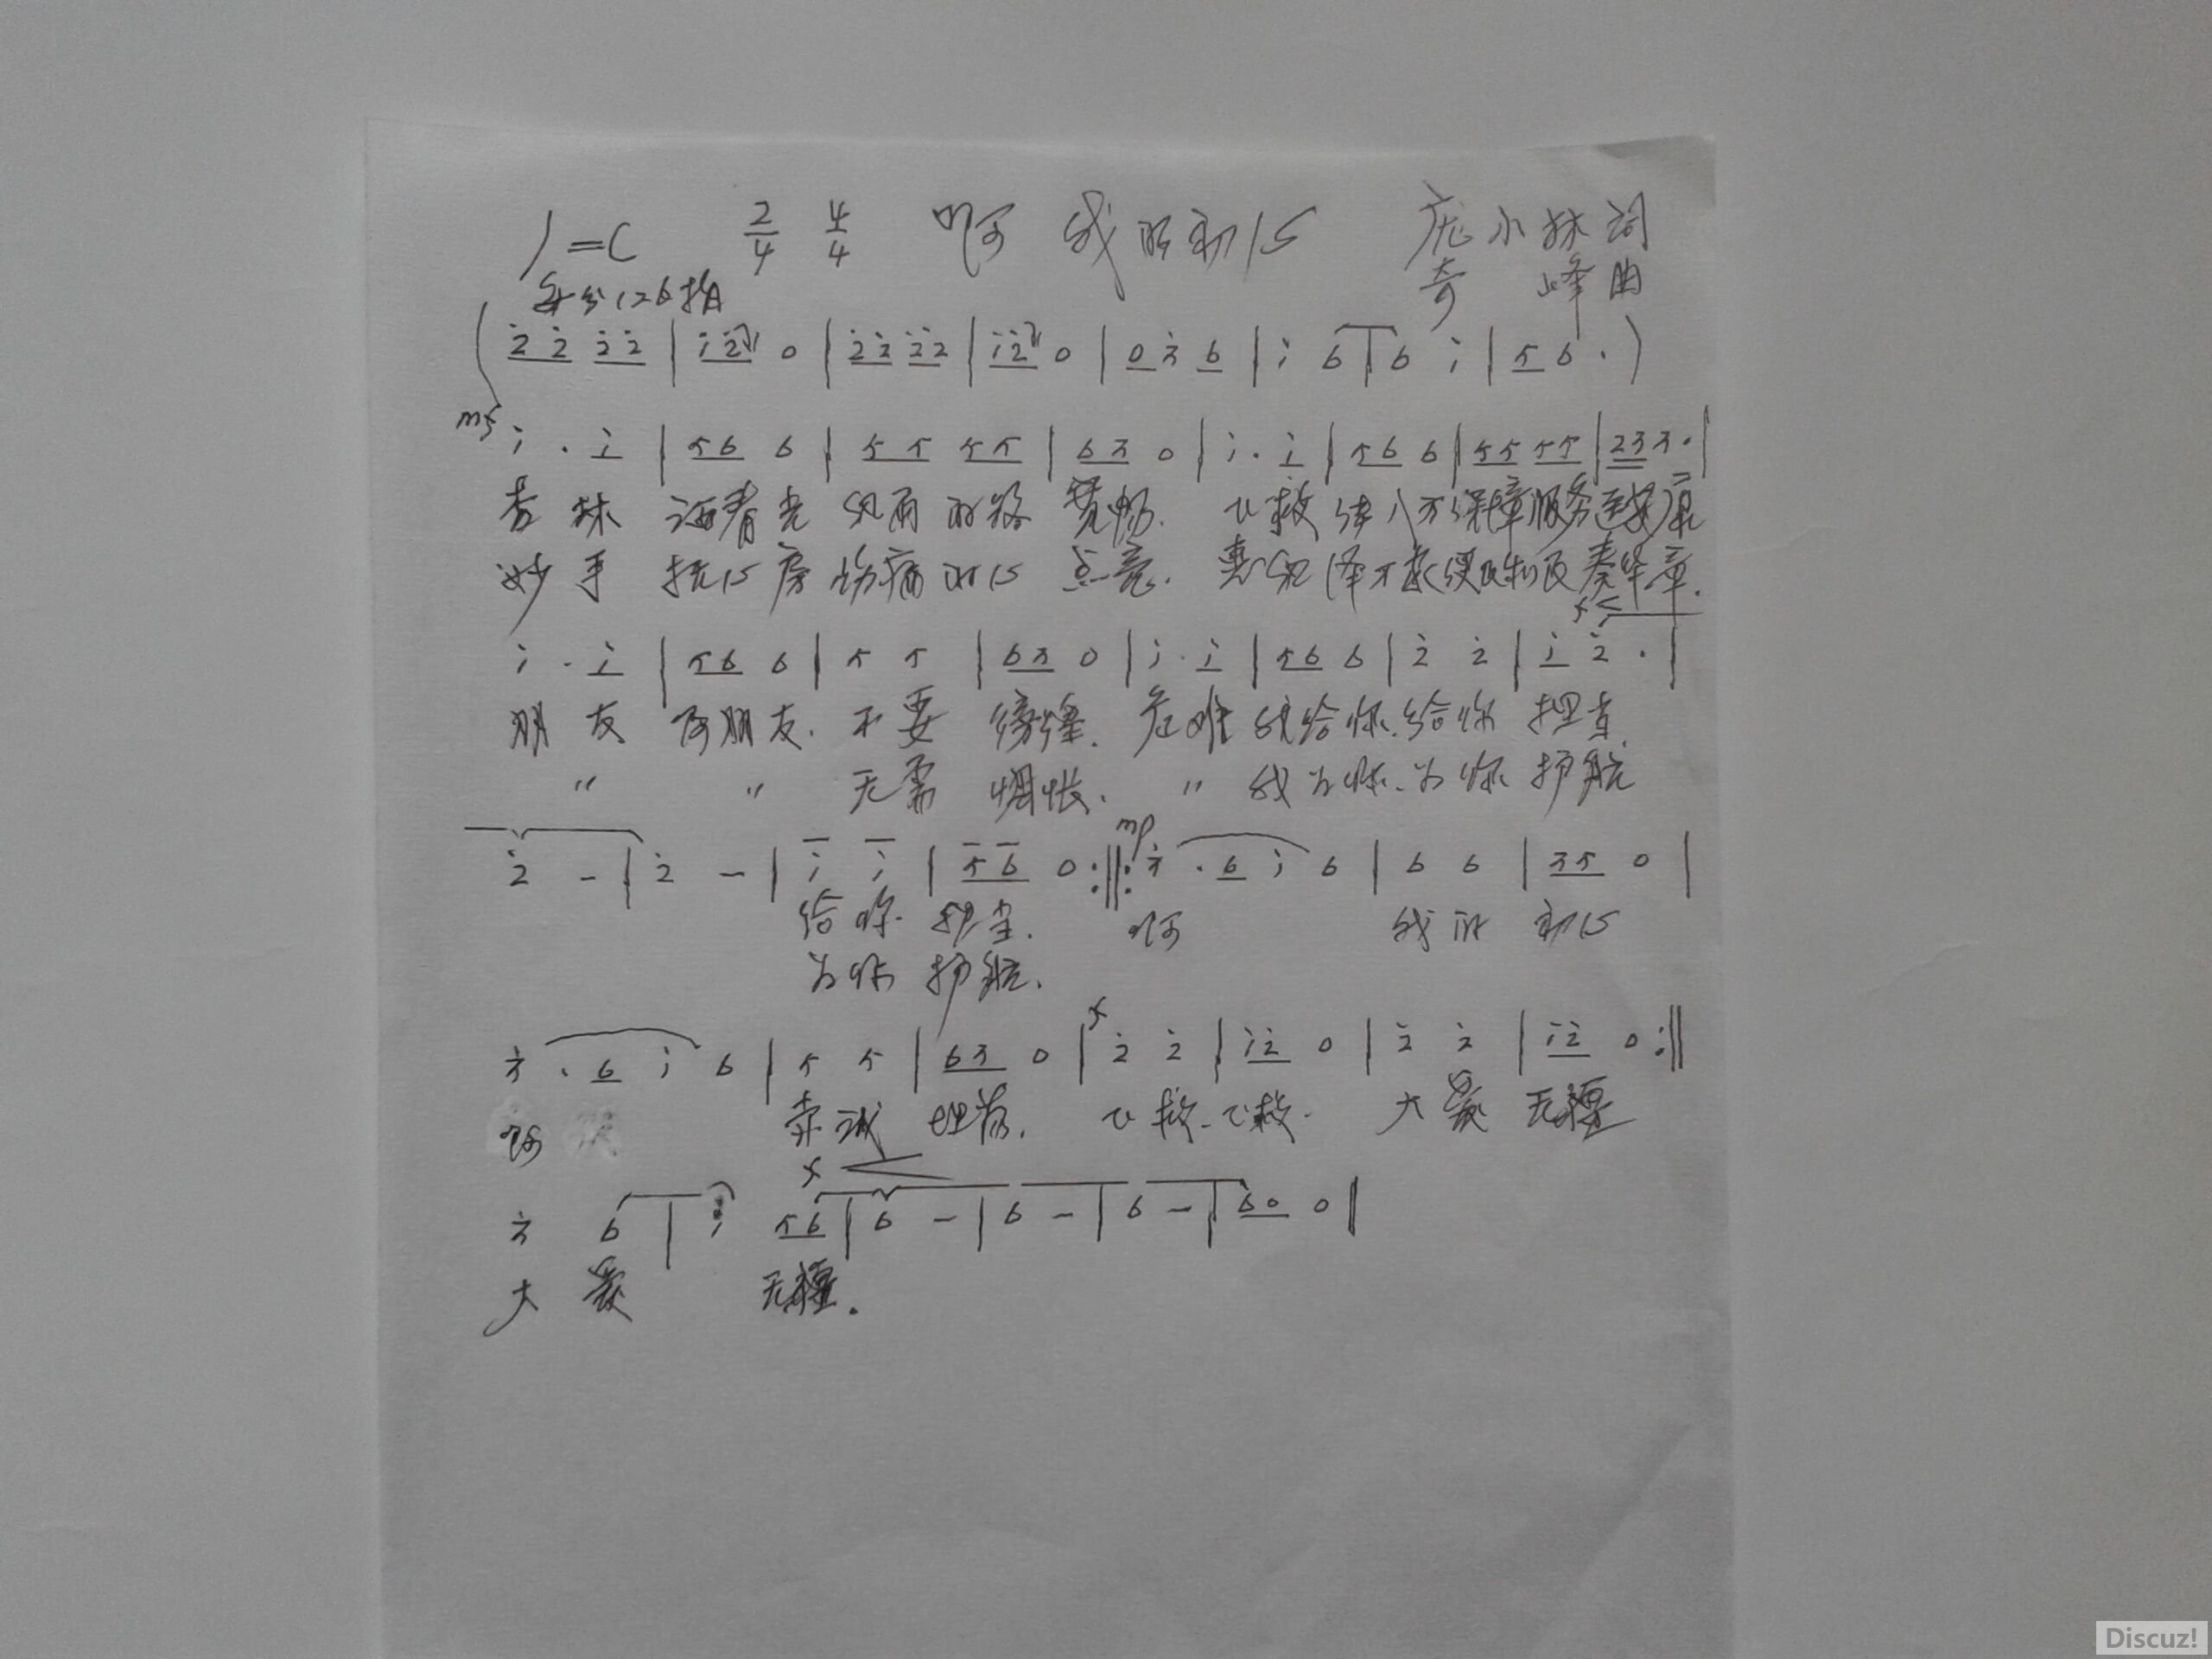 1=C 2/4 4/4 啊 我的初心 庞小林词
每分126拍 奇 峰曲
(2̇ 2̇ 2̇ 2̇ | 1̇ 2̇ 0 | 2̇ 2̇ 2̇ 2̇ | 1̇ 2̇ 0 | 0 3̇ 6 | 1̇ 6 | 6 1̇ | 5 6 · )
mf 1̇ · 1̇ | 5 6 6 | 5 5 5 5 | 6 3 0 | 1̇ · 1̇ | 5 6 6 | 5 5 5 5 | 2 3 3 · |
杏林 春光 风雨的路 救 八方保障服务
妙手 心房 伤病的心 点亮. 惠 泽 奏华章.
1̇ · 1̇ | 5 6 6 | 5 5 | 6 3 0 | 1̇ · 1̇ | 5 6 6 | 2̇ 2̇ | 1̇ 2̇ · |
朋友 啊朋友. 不要 彷徨. 危难 我给你.给你 担当.
" " 无需 惆怅. " 我为你.为你 护航
2̇ - | 2̇ - | 1̇ 1̇ | 5 6 0 :||: mp 3̇ · 6 1̇ 6 | 6 6 | 3 5 0 |
给你 担当. 啊 我的 初心
为你 护航.
3̇ · 6 1̇ 6 | 5 5 | 6 3 0 | f 2̇ 2̇ | 1̇ 2̇ 0 | 2̇ 2̇ | 1̇ 2̇ 0 :||
啊 赤诚 救 救. 大爱 无疆
f
3̇ 6 | 1̇ 5 6 | 6 - | 6 - | 6 - | 6 0 0 ||
大爱 无疆.
Discuz!